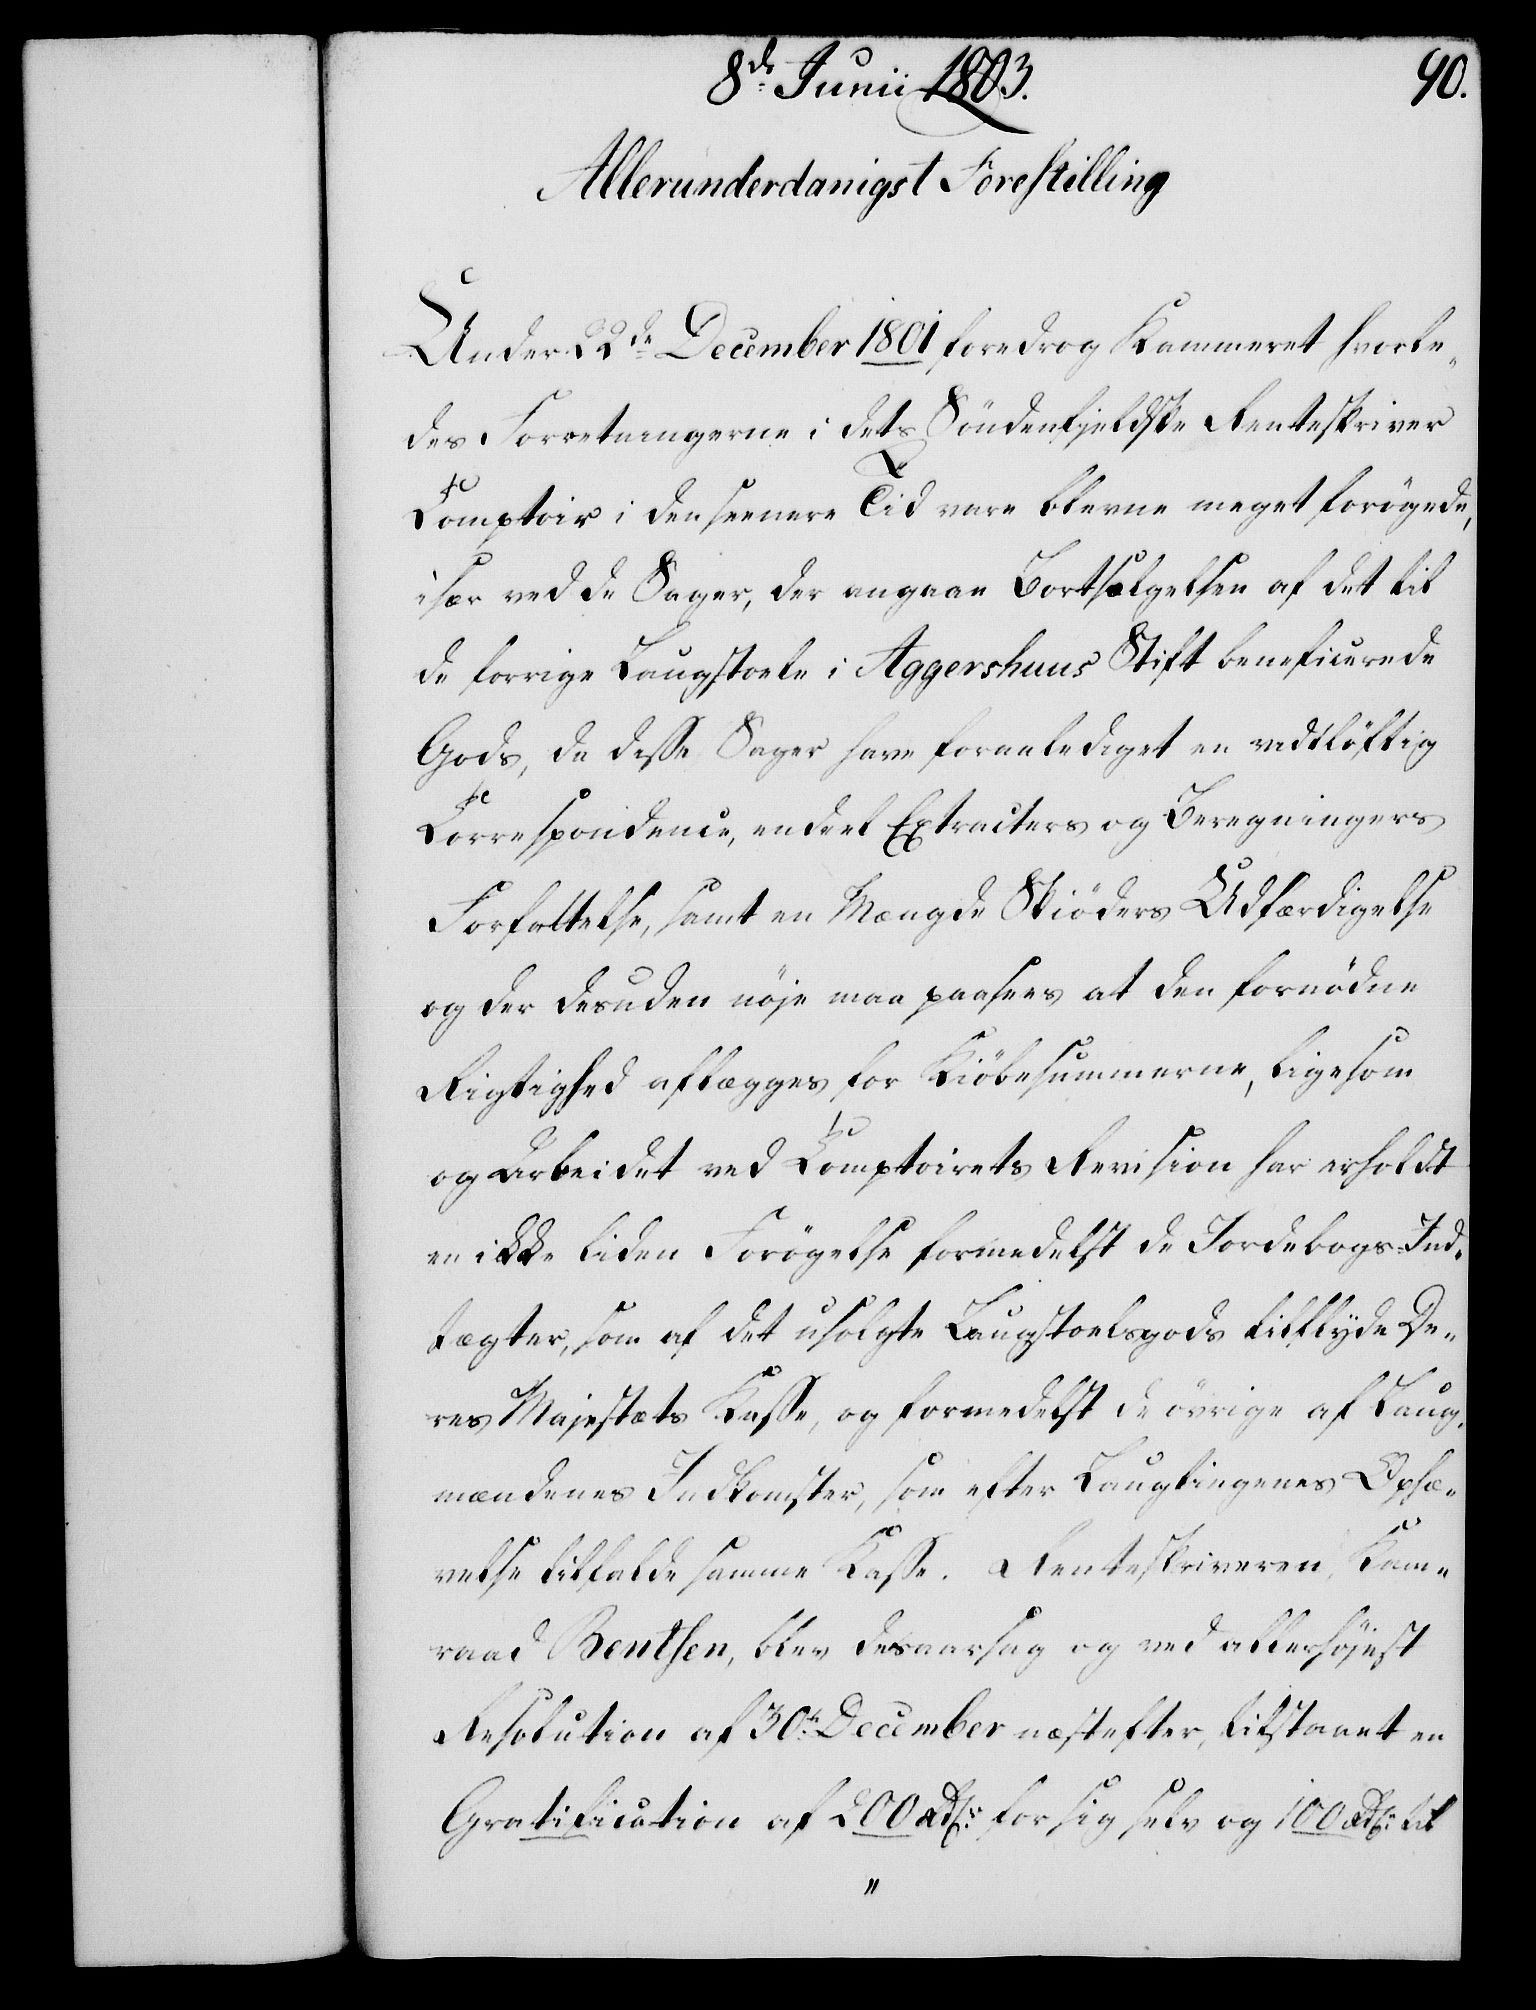 8de Junii 1803.
90.
Allerunderdanigst Forestilling
Under 22de December 1801 foredrog Kammeret hvorle-
des Forretningerne i dets Söndenfjeldske Renteskriver
Comptoir i den seenere Tid vare blevne meget forögede,
især ved de Sager, der angaae Bortsælgelsen af det til
de forrige Laugstoele i Aggershuus Stift beneficerede
Gods, da disse Sager have foranlediget en vidtlöftig
Correspondence, endeel Extracters og Beregningers
Forfattelse, samt en Mængde Skiöders Udfærdigelse
og der desuden nöje maa paasees at den fornödne
Rigtighed aflægges for Kiöbesummerne, ligesom
og Arbeidet ved Comptoirets Revision har erholdt
en ikke liden Forögelse formedelst de Jordebogs-Ind-
tægter, som af det usolgte Laugstoelsgods tilflyde De-
res Majestæts Kasse, og formedelst de övrige af Laug-
mændenes Indkomster, som efter Laugtingenes Ophæ-
velse tilfalde samme Kasse. Renteskriveren, Kam-
raad Benthsen, blev desaarsag og ved allerhöjest
Resolution af 30te December næstefter, tilstaaet en
Gratification af 200 Rdlr for sig selv og 100 Rdlr til
"